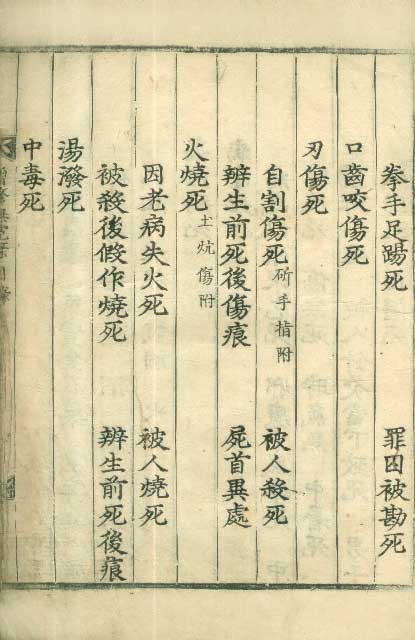 拳手足踢死 罪囚被勘死
口齒咬傷死
刃傷死
自割傷死 斫手指附 被人殺死
辨生前死後傷痕 屍首異處
火燒死 土炕傷附
因老病失火死 被人燒死
被殺後假作燒死 辨生前死後痕
湯潑死
中毒死